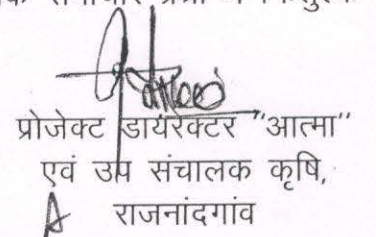 प्रोजेक्ट डायरेक्टर "आत्मा"
एवं उप संचालक कृषि,
राजनांदगांव